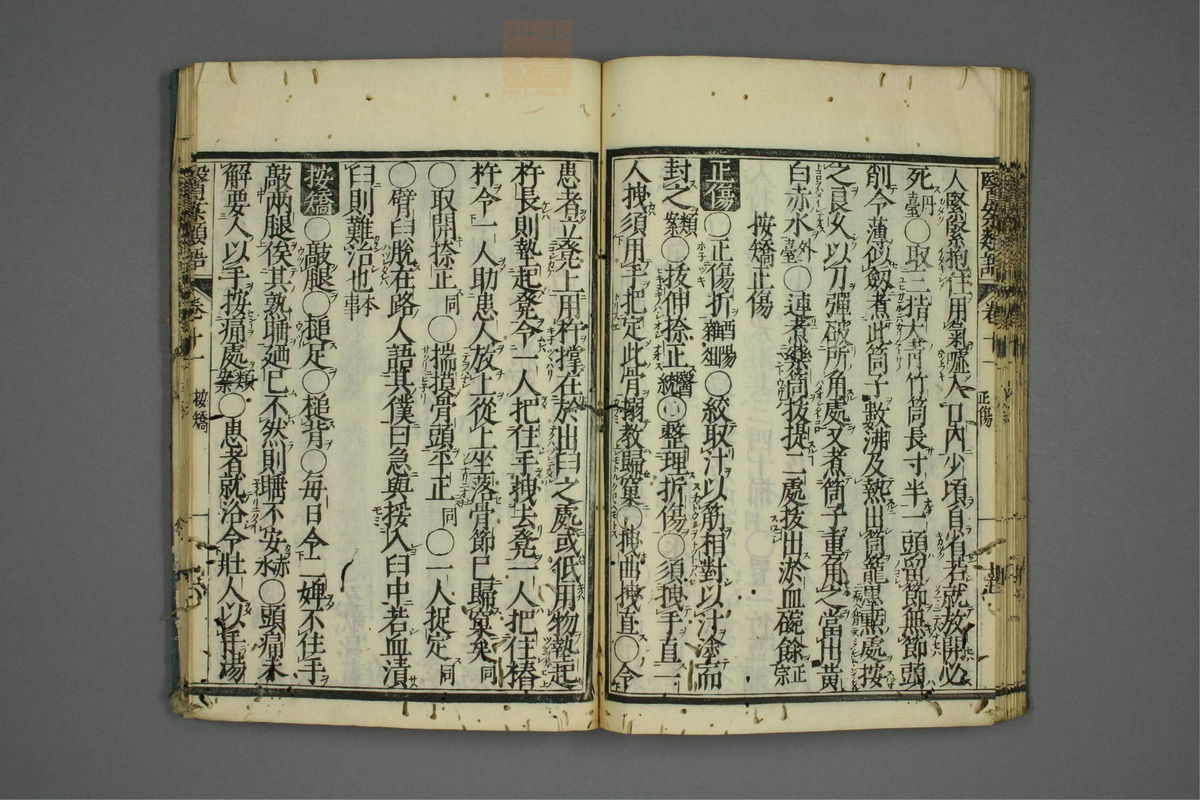 人緊緊抱住用氣噓入口內少頃自省若就放開必
死丹臺〇取三指大青竹筒長寸半一頭留節無節頭
削令薄似劒煮此筒子數沸及熱出筒籠患處按
之良久以刀彈破所角處又煮筒子重角之當出黃
白赤水外臺〇連煮藥筒拔提二處拔出淤血碗餘正宗
按矯正傷
正傷〇正傷折酉陽雜俎〇絞取汁以筋相對以汁塗而
封之類案〇拔伸捺正醫統〇整理折傷〇須拽手直一
人拽須用手把定此骨搦教歸窠〇拽曲拽直〇令
患者立凳上用杵撐在於出臼之處或低用物墊起
杵長則墊起凳令一人把住手拽去凳一人把住樁
杵令一人助患人放上從上坐落骨節已歸窠矣同
〇取開捺正同〇揣摸骨頭平正同〇一人捉定同
〇臂臼脫在路人語其僕曰急與挼入臼中若血漬
臼則難治也本事
按矯〇敲腿〇槌足〇槌背〇每日令二婢不住手
敲兩腿俟其熟睡廼已不然則睡不安赤水〇頭痛不
解要人以手按痛處類案〇患者就浴令壯人以手湯
卷十一
按矯
正傷